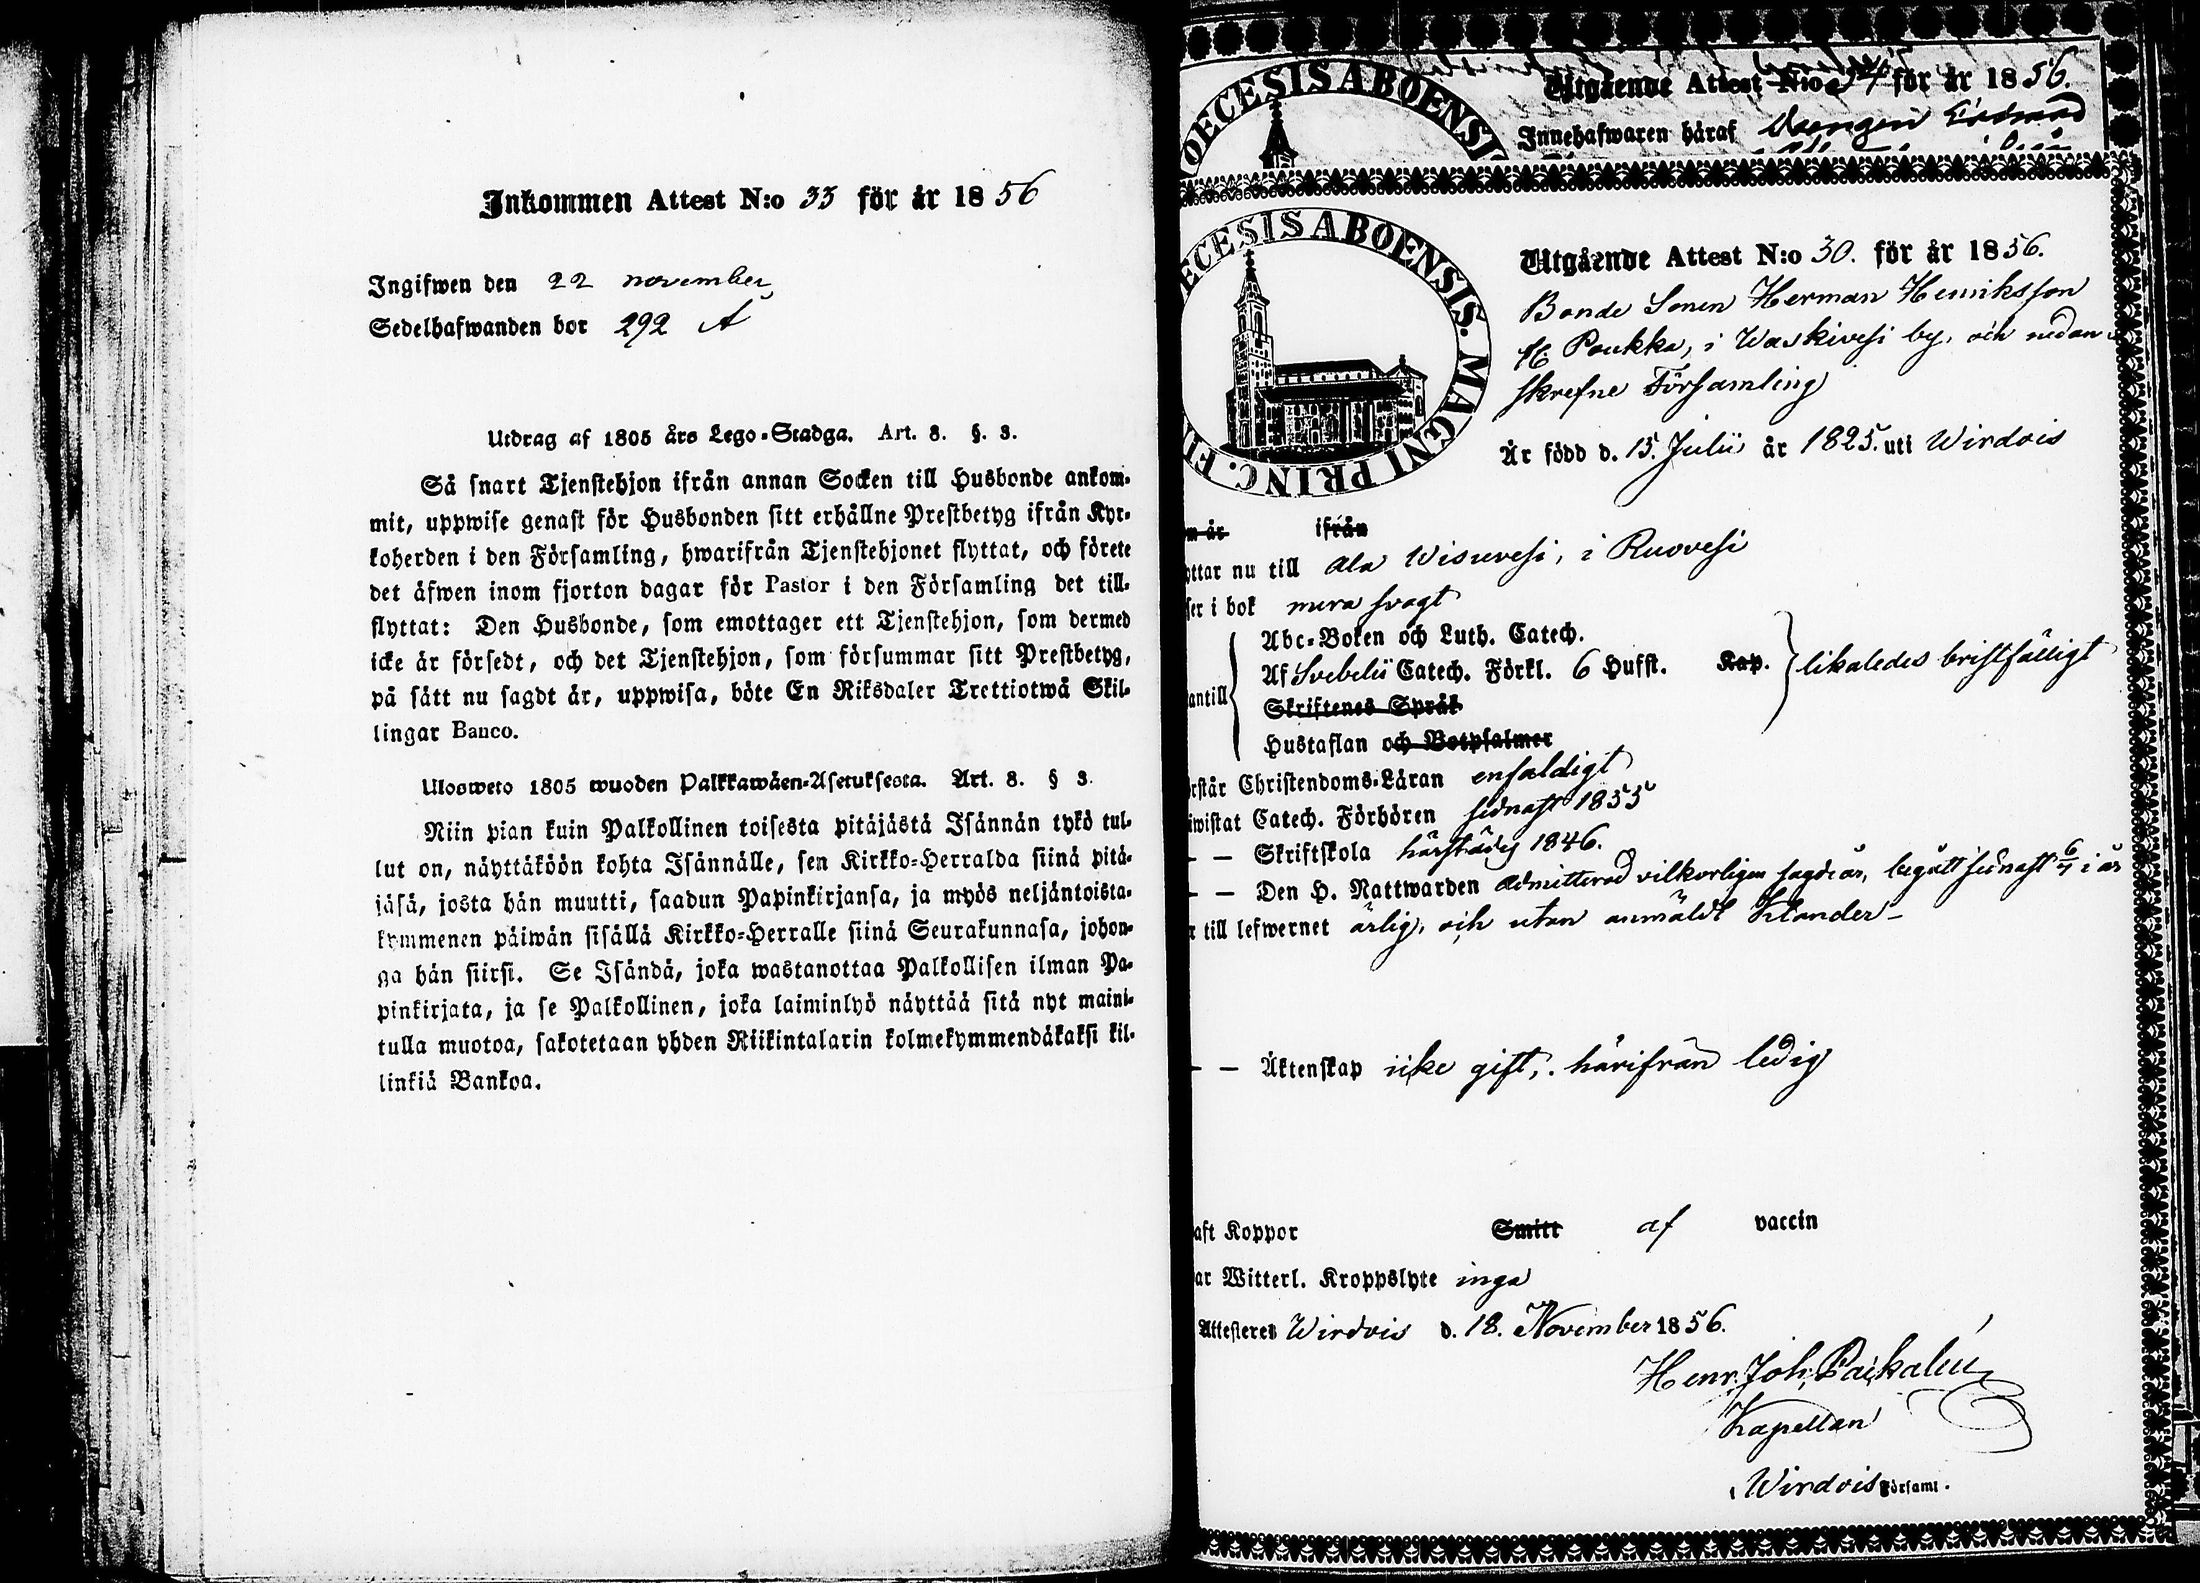 Inkommen Attest N:o 33 för år 1856
Ingifwen den 22 november
Sedelhafwanden bor 292 A
Utdrag af 1805 års Lego-Stadga. Art. 8. §. 3.
Så snart Tjenstehjon ifrån annan Socken till Husbonde ankom-
mit, uppwise genast för Husbonden sitt erhållne Prestbetyg ifrån Kyr-
koherden i den Församling, hwarifrån Tjenstehjonet flyttat, och förete
det äfwen inom fjorton dagar för Pastor i den Församling det till-
flyttat: Den Husbonde, som emottager ett Tjenstehjon, som dermed
icke är försedt, och det Tjenstehjon, som försummar sitt Prestbetyg,
på sätt nu sagdt är, uppwisa, böte En Riksdaler Trettiotwå Skil-
lingar Banco.
Ulosweto 1805 wuoden Palkkawäen-Asetuksesta. Art. 8. § 3.
Niin pian kuin Palkollinen toisesta pitäjästä Isännän tykö tul-
lut on, näyttäköön kohta Isännälle, sen Kirkko-Herralda siinä pitä-
jäsä, josta hän muutti, saadun Papinkirjansa, ja myös neljäntoista-
kymmenen päiwän sisällä Kirkko-Herralle siinä Seurakunnasa, johon-
ga hän siirsi. Se Isändä, joka wastanottaa Palkollisen ilman Pa-
pinkirjata, ja se Palkollinen, joka laiminlyö näyttää sitä nyt maini-
tulla muotoa, sakotetaan yhden Riikintalarin kolmekymmendäkaksi kil-
linkiä Bankoa.
OECESIS ABOENSI
Utgående Attest N:o 34 för år 1856.
Innehafwaren häraf
ECESIS ABOENSIS. MAGNI PRINC. FI
Utgående Attest N:o 30. för år 1856.
Bonde Sonen Herman Henriksson
Poukka, i Waskivesi by, och nedan
skrefne Församling
Är född d. 15. Julii år 1825. uti Wirdois
m år ifrån
yttar nu till Ala Wisuvesi, i Ruovesi
ser i bok mera svagt
Abc-Boken och Luth. Catech.
Af Svebelii Catech. Förkl. 6 Hufst. Kap. likaledes bristfälligt
antill
Skriftenes Språk
Hustaflan och Botpsalmer
rstår Christendoms-Läran enfaldigt
iwistat Catech. Förhören sednast 1855
– – Skriftskola härstädes 1846.
– – Den H. Nattwarden admitterad vilkorligen sagde år, begått sednast 6/7 i år
r till lefwernet ärlig, och utan anmäldt klander –
– – Äktenskap icke gift, härifrån ledig
aft Koppor Smitt af vaccin
ar Witterl. Kroppslyte inga
Attesteres Wirdois d. 18. November 1856.
Henr. Joh. Packalén
Kapellan
i Wirdois Församl.